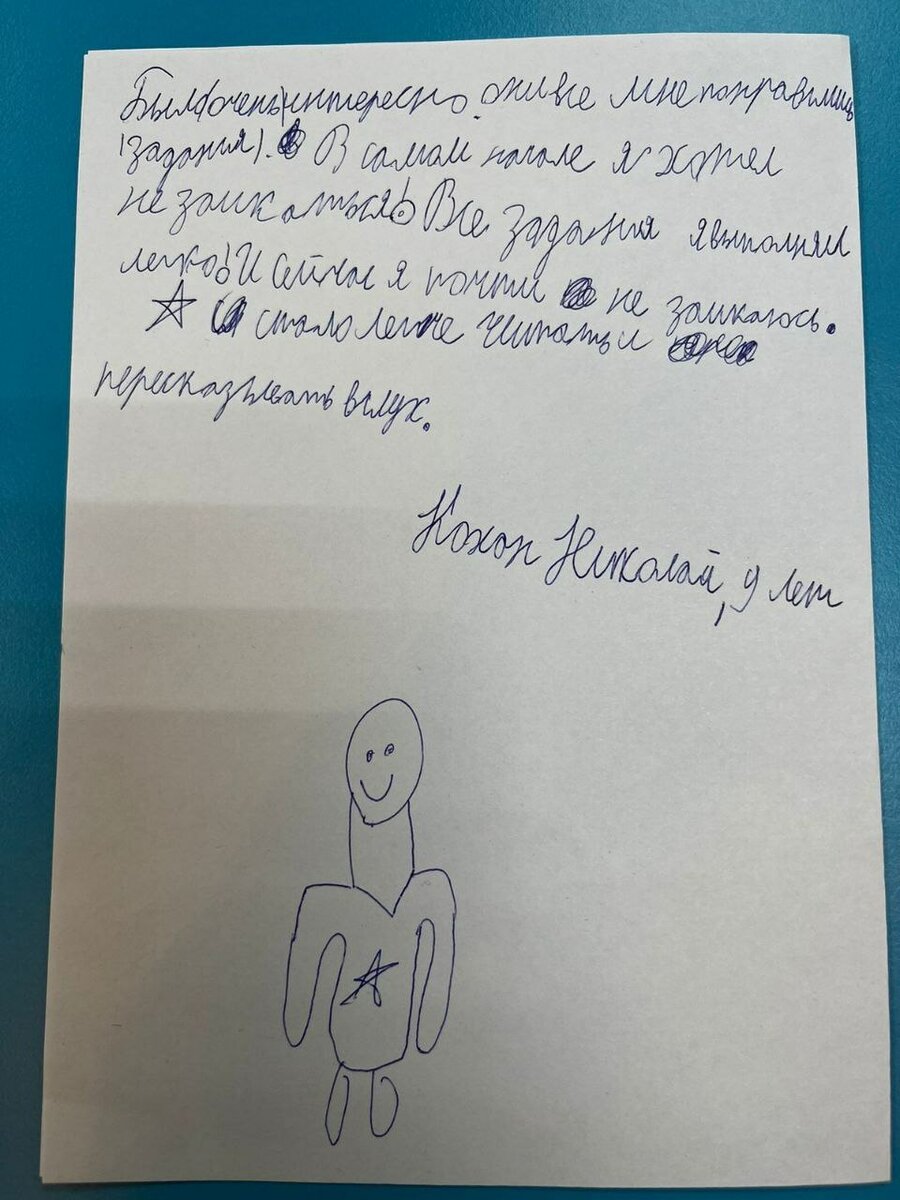 Было (очень) интересно. они все мне понравились
(задания). В самом начале я хотел
не заикаться! Все задания я выполнял
легко! И сейчас я почти не заикаюсь.
стало легче читать и
пересказывать вслух.
Кохон Николай, 9 лет